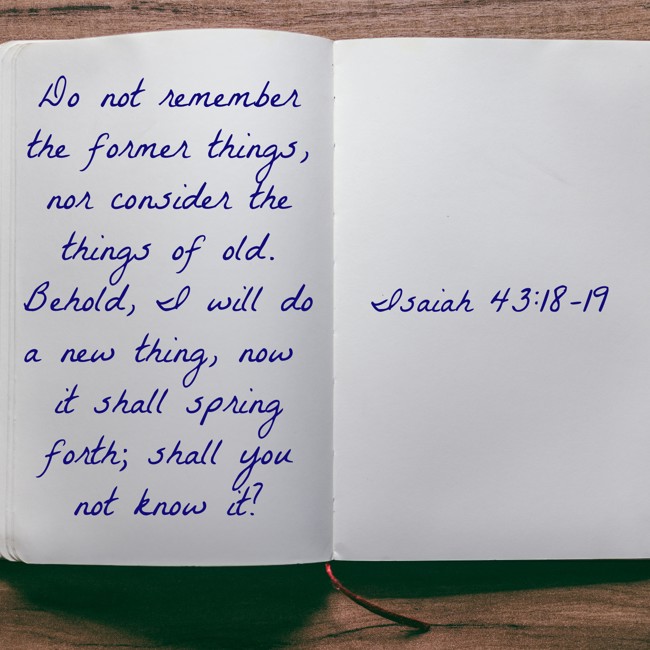 Do not remember
the former things,
nor consider the
things of old.
Behold, I will do
a new thing, now
it shall spring
forth; shall you
not know it?
Isaiah 43:18-19